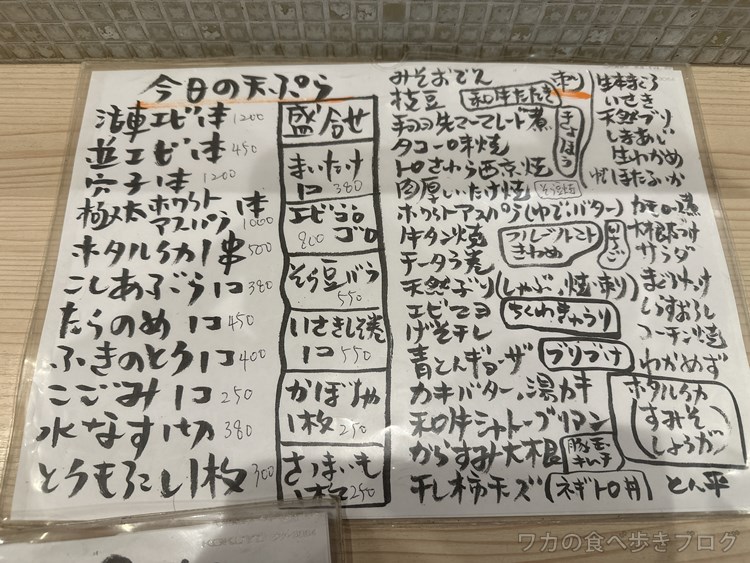 今日の天ぷら
活車エビ1本 1200
並エビ1本 450
穴子1本 1200
極太ホワイト
アスパラ 1本 1000
ホタルイカ1串 500
こしあぶら1コ 380
たらのめ1コ 450
ふきのとう1コ 400
こごみ1コ 250
水なす1切 380
とうもろこし1枚 300
盛合せ
まいたけ
1コ 380
エビ
ゴロゴロ
800
そら豆バラ
550
いさきしそ巻
1コ 550
かぼちゃ
1枚 250
さつまいも
1枚 250
みそおでん
枝豆
和牛たたき
手羽先マーマレード煮
タコ一味焼
トロさわら西京焼
肉厚しいたけ焼
そら豆
ホワイトアスパラ(ゆで・バター)
牛タン焼
フルーツトマト
チータラ
天然ぶり(しゃぶ、焼、刺)
エビマヨ
ちくわきゅうり
げそ干し
青とんギョーザ
ブリづけ
カキバター、湯カキ
和牛シャトーブリアン
からすみ大根
豚モモ
キムチ
干し柿チーズ
ネギトロ丼
とん平
刺
生本まぐろ
いさき
天然ブリ
しまあじ
生わかめ
ほたるいか
カモロース煮
サラダ
しらすおろし
コーチン焼
わかめず
ホタルイカ
すみそ
しょうが
ワカの食べ歩きブログ